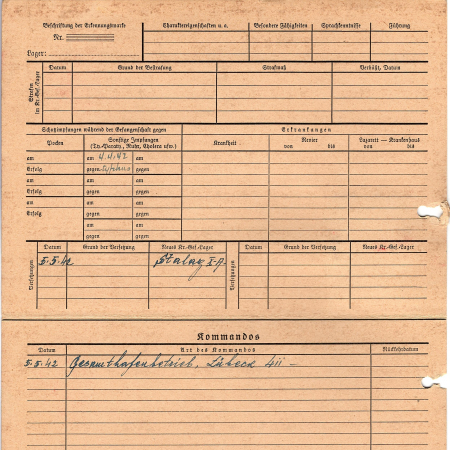 Beschriftung der Erkennungsmarke
Nr.
Lager:
Charaktereigenschaften u. a.
Besondere Fähigkeiten
Sprachkenntnisse
Führung
Strafen im Kr.-Gef.-Lager
Datum
Grund der Bestrafung
Strafmaß
Verbüßt, Datum
Schutzimpfungen während der Gefangenschaft gegen
Erkrankungen
Pocken
Sonstige Impfungen
(Ty.-Paraty., Ruhr, Cholera usw.)
Krankheit
Revier
von bis
Lazarett — Krankenhaus
von bis
am am 4.4.42 am
Erfolg gegen gegen
am am am
Erfolg gegen gegen
am am am
Erfolg gegen gegen
am am
gegen gegen
Versetzungen
Datum Grund der Versetzung Neues Kr.-Gef.-Lager
5.5.42 Stalag X-A
Versetzungen
Datum Grund der Versetzung Neues Kr.-Gef.-Lager
Kommandos
Datum Art des Kommandos Rückkehrdatum
5.5.42 Gesamthafenbetrieb, Lübeck